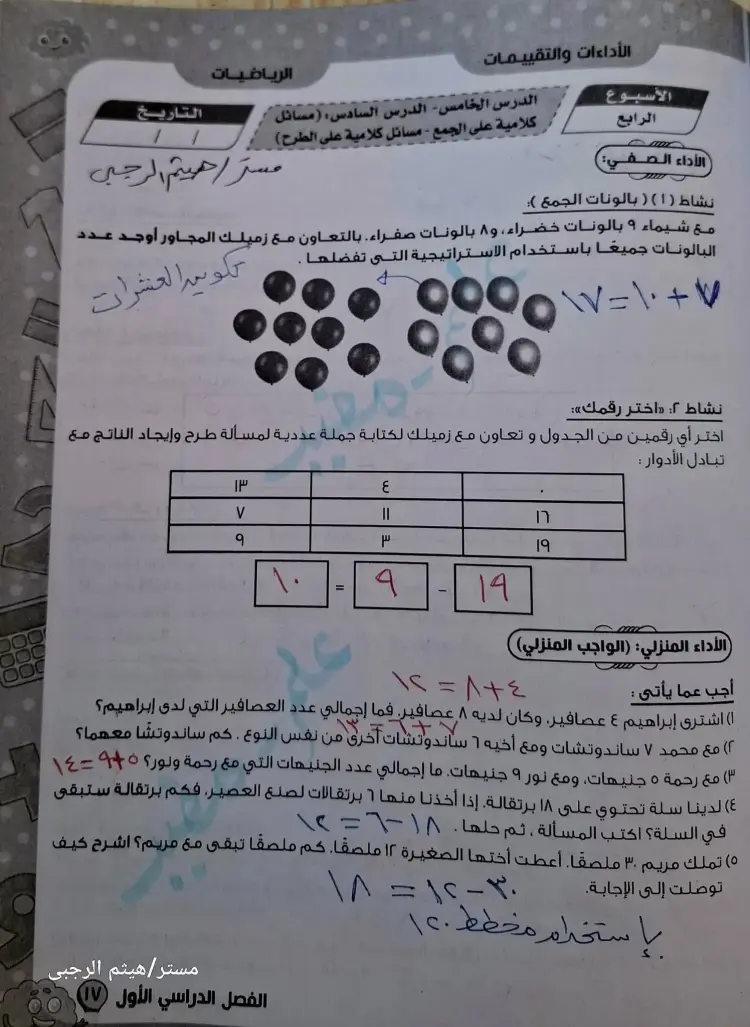 الأداءات والتقييمات
الرياضيات
الأسبوع
الرابع
الدرس الخامس - الدرس السادس: (مسائل
كلامية على الجمع - مسائل كلامية على الطرح)
التاريخ
/ /
الأداء الصفي:
مستر/هيثم الرجبى
نشاط (١) ( بالونات الجمع ):
مع شيماء ٩ بالونات خضراء، و٨ بالونات صفراء. بالتعاون مع زميلك المجاور أوجد عدد
البالونات جميعًا باستخدام الاستراتيجية التي تفضلها .
تكوين العشرات
٧ + ١٠ = ١٧
نشاط ٢: «اختر رقمك»:
اختر أي رقمين من الجدول و تعاون مع زميلك لكتابة جملة عددية لمسألة طرح وإيجاد الناتج مع
تبادل الأدوار :
٠ ٤ ١٣
١٦ ١١ ٧
١٩ ٣ ٩
١٩ - ٩ = ١٠
الأداء المنزلي: (الواجب المنزلي)
أجب عما يأتى :
٤ + ٨ = ١٢
١) اشترى إبراهيم ٤ عصافير، وكان لديه ٨ عصافير. فما إجمالي عدد العصافير التي لدى إبراهيم؟
٧ + ٦ = ١٣
٢) مع محمد ٧ ساندوتشات ومع أخيه ٦ ساندوتشات أخرى من نفس النوع . كم ساندوتشًا معهما؟
٣) مع رحمة ٥ جنيهات، ومع نور ٩ جنيهات. ما إجمالي عدد الجنيهات التي مع رحمة ونور؟ ٥ + ٩ = ١٤
٤) لدينا سلة تحتوي على ١٨ برتقالة. إذا أخذنا منها ٦ برتقالات لصنع العصير، فكم برتقالة ستبقى
في السلة؟ اكتب المسألة ، ثم حلها . ١٨ - ٦ = ١٢
٥) تملك مريم ٣٠ ملصقًا. أعطت أختها الصغيرة ١٢ ملصقًا. كم ملصقًا تبقى مع مريم؟ اشرح كيف
توصلت إلى الإجابة. ٣٠ - ١٢ = ١٨
بإستخدام مخطط ١٢٠
مستر/هيثم الرجبى
الفصل الدراسي الأول ١٧